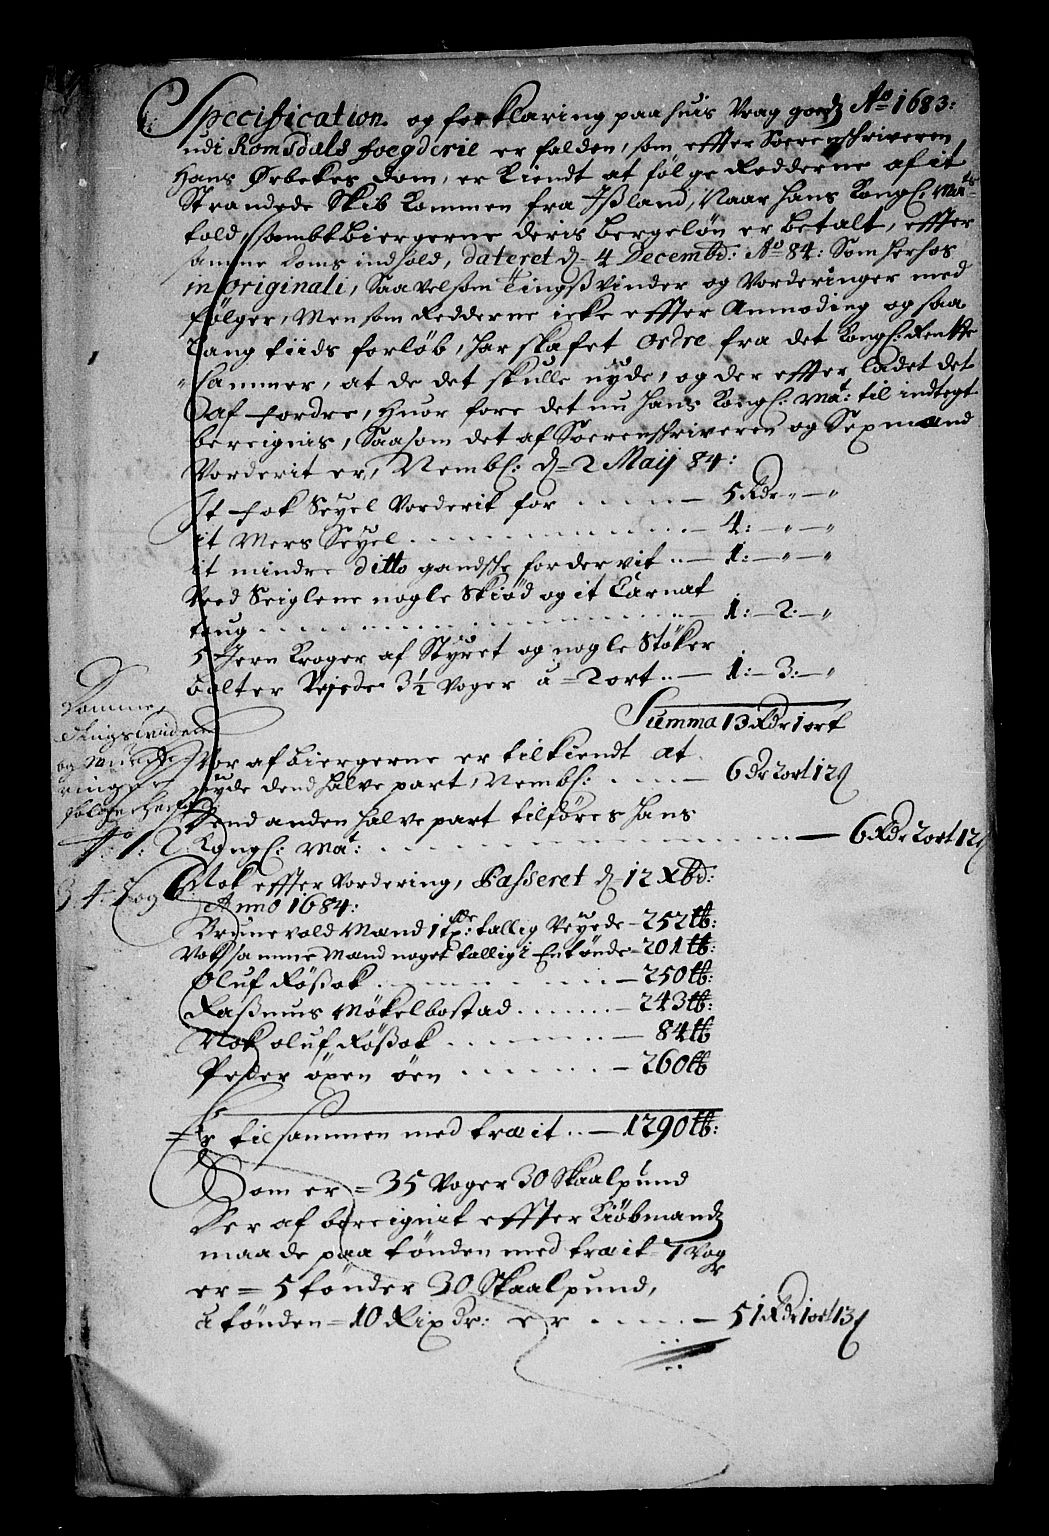 Specification og forklaring paa huis Vrag godz Aº 1683:
udi Romsdals foegderie er falden, som effter Soerenschriveren
Hans Ørbekes dom, er kiendt at følge Redderne af it
Strandede Skib kommen fra Ißland, Naar Hans Kongl: Mats
told, sambt biergerne deris bergeløn er betalt, effter
samme doms indhold, dateret d= 4 Decembd: Aº 84: Som herhos
in originali, Saavelsom Tingsvinder og Vorderinger med
følger, Men som Redderne icke effter Anmoding og saa
Lang tiids forløb, har skafet Ordre fra det Kongl: Rentte
Cammer, at de det skulle nyde, og der effter ladet det
af fordre, Huor fore det nu Hans Kongl: Mat: til indtegt
bereignis, Saasom det af Soerenschriveren og Sexmænd
Vorderit er, Nembl: d= 2 Maij 84:
It fok Seyel Vorderit for — 5 Rdr „ — „
it Mers Seyel — 4: — „ — „
it mindre ditto gandsche fordervit — 1: — „ — „
Veed Seiglene nogle Skiød og it Carnat
toug — 1: — 2: — „
5 Jern Kroger af Styret og nogle Støker
bolter Vejede 3½ Voger a= 2 ort — 1: — 3: — „
Summa 13 Rdr 1 ort
Hvor af biergerne er tilkiendt at
nyde dend halve part, Nembl: — 6 dr 2 ort 12 ß
Dend anden halve part tilføres Hans
Kongl: Mat: — 6 Rdr 2 ort 12 ß
Kommer
Tingsvidene
og
følger herhos
Nok effter Vordering, Passeret d= 12 Xbd:
Anno 1684:
Brunevold Mand 1 tallig Veyede — 252 tb:
Nok samme Mand noget tallig i En tønde — 201 tb:
Oluf Rößok — 250 tb:
Raßmus Møkelbostad — 243 tb:
Nok oluf Rößok — 84 tb
Peder öxen öen — 260 tb
Er tilsammen med træit — 1290 tb:
Som er = 35 Voger 30 Skaalpund
Der af bereignit effter Kiöbmandz
maade paa tønden med træit 7 Vogr
er = 5 tønder 30 Skaalpund,
a tønden = 10 Rixdr: er — 51 Rdr 1 ort 13 ß